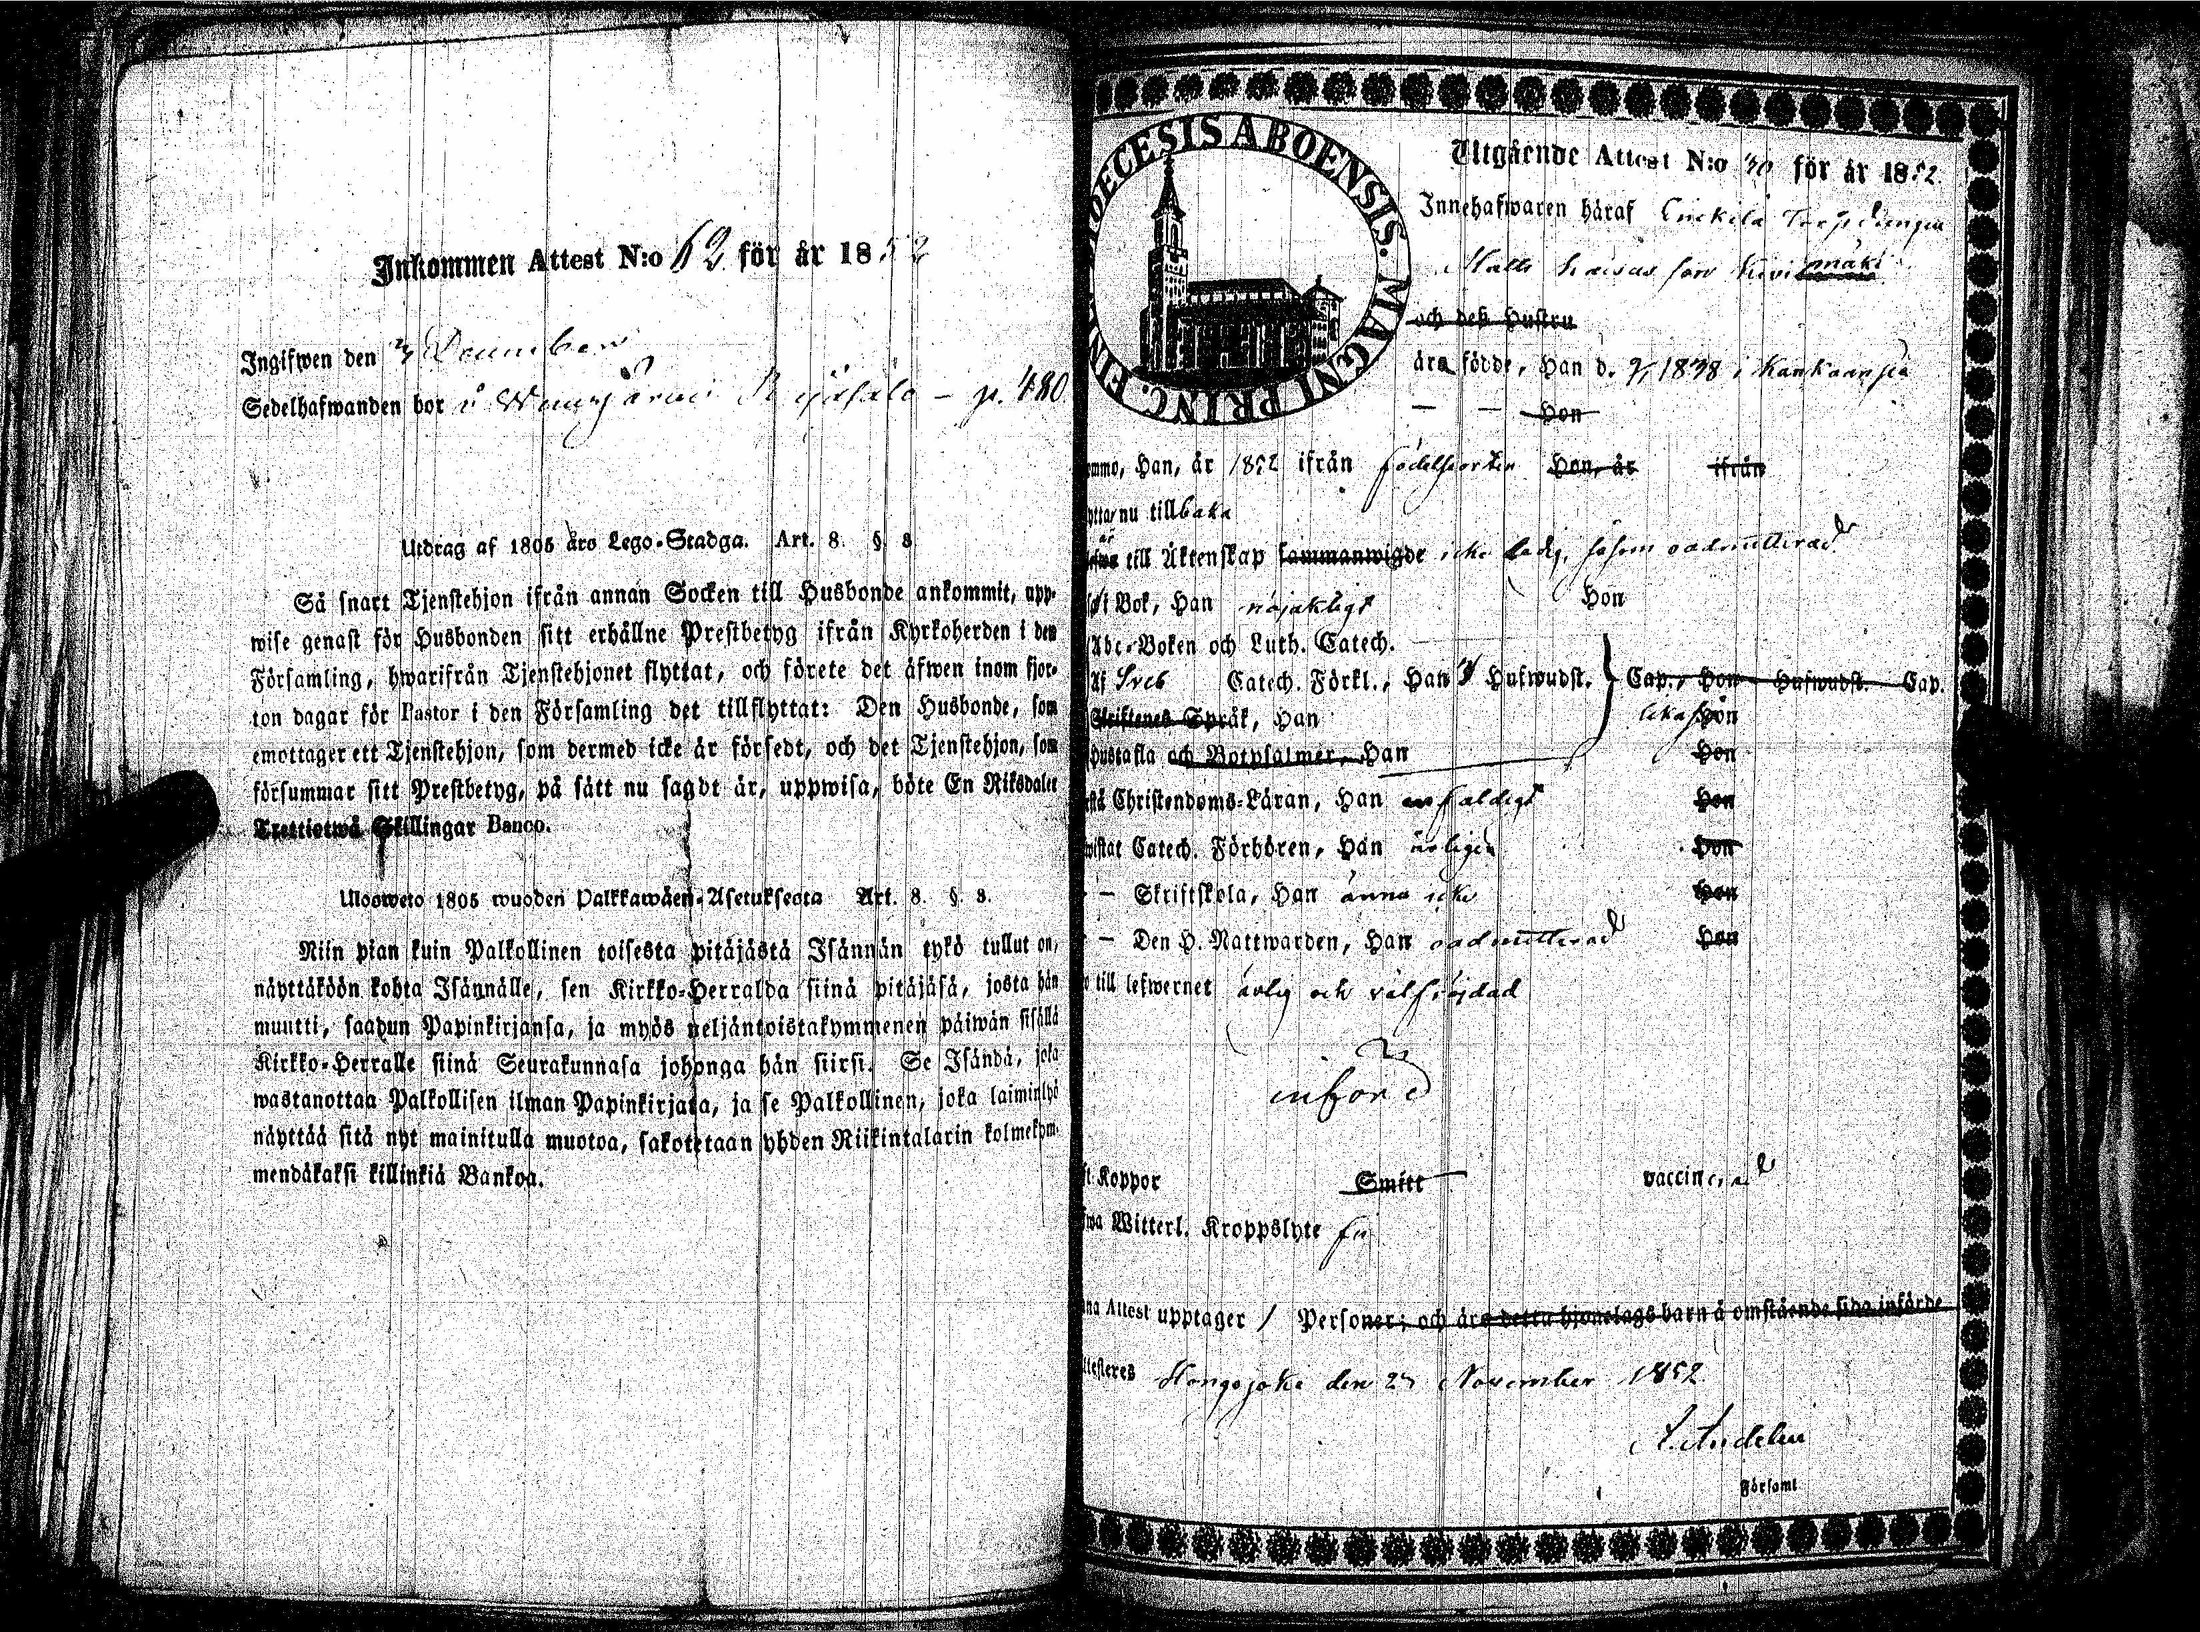 Inkommen Attest N:o 62 för år 1852
Ingifwen den December
Sedelhafwanden bor i p. 480
Utdrag af 1805 års Lego-Stadga. Art. 8. §. 8
Så snart Tjenstehjon ifrån annan Socken till Husbonde ankommit, upp-
wise genast för Husbonden sitt erhållne Prestbetyg ifrån Kyrkoherden i den
Församling, hwarifrån Tjenstehjonet flyttat, och förete det äfwen inom fjor-
ton dagar för Pastor i den Församling det tillflyttat: Den Husbonde, som
emottager ett Tjenstehjon, som dermed icke är försedt, och det Tjenstehjon, som
försummar sitt Prestbetyg, på sätt nu sagdt är, uppwisa, böte En Riksdaler
Trettiotwå Skillingar Banco.
Ulosweto 1805 wuoden Palkkawäen-Asetuksesta Art. 8. §. 8.
Niin pian kuin Palkollinen toisesta pitäjästä Isännän tykö tullut on,
näyttäköön kohta Isännälle, sen Kirkko-Herralda siinä pitäjäsä, josta hän
muutti, saahun Papinkirjansa, ja myös neljäntoistakymmenen päiwän sisällä
Kirkko-Herralle siinä Seurakunnasa johonga hän siirsi. Se Isändä, joka
wastanottaa Palkollisen ilman Papinkirjata, ja se Palkollinen, joka laiminlyö
näyttää sitä nyt mainitulla muotoa, sakotetaan yhden Riikintalarin kolmekym-
mendäkaksi killinkiä Bankoa.
DIOECESIS ABOENSIS. MAGNI PRINC. FIN
Utgående Attest N:o 30 för år 1852
Innehafwaren häraf
Matts son Kivimäki
och deß Hustru
äro födde, Han d. 1838 i Kankaanpää
— — Hon
Han, år 1852 ifrån födelseorten Hon, år ifrån
nu tillbaka
är till Äktenskap sammanwigde icke ledig, såsom oadmitterad
i Bok, Han nöjaktigt Hon
Abc-Boken och Luth. Catech.
Af Sveb Catech. Förkl., Han Hufwudst. Cap., Hon Hufwudst. Cap.
Skriftenes Språk, Han Hon
Hustafla och Botpsalmer, Han Hon
Christendoms-Läran, Han enfaldigt Hon
Catech. Förhören, Han årligen Hon
— Skriftskola, Han ännu icke Hon
— Den H. Nattwarden, Han oadmitterad Hon
till lefwernet ärlig och välfrejdad
införd
Koppor Smitt vaccinerad
Witterl. Kroppslyte fri
Attest upptager 1 Personer; och äro detta hjonelags barn å omstående sida införde
Hongojoki den 27 November 1852
A. Andelin
Församl